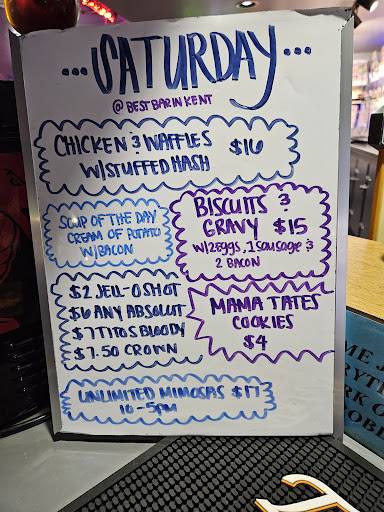 ...SATURDAY...
@ BEST BAR IN KENT
CHICKEN & WAFFLES $16
W/STUFFED HASH
SOUP OF THE DAY
CREAM OF POTATO
W/BACON
BISCUITS &
GRAVY $15
W/2 EGGS, 1 SAUSAGE &
2 BACON
$2 JELL-O SHOT
$6 ANY ABSOLUT
$7 TITOS BLOODY
$7.50 CROWN
MAMA TATES
COOKIES
$4
UNLIMITED MIMOSAS $17
10-5PM